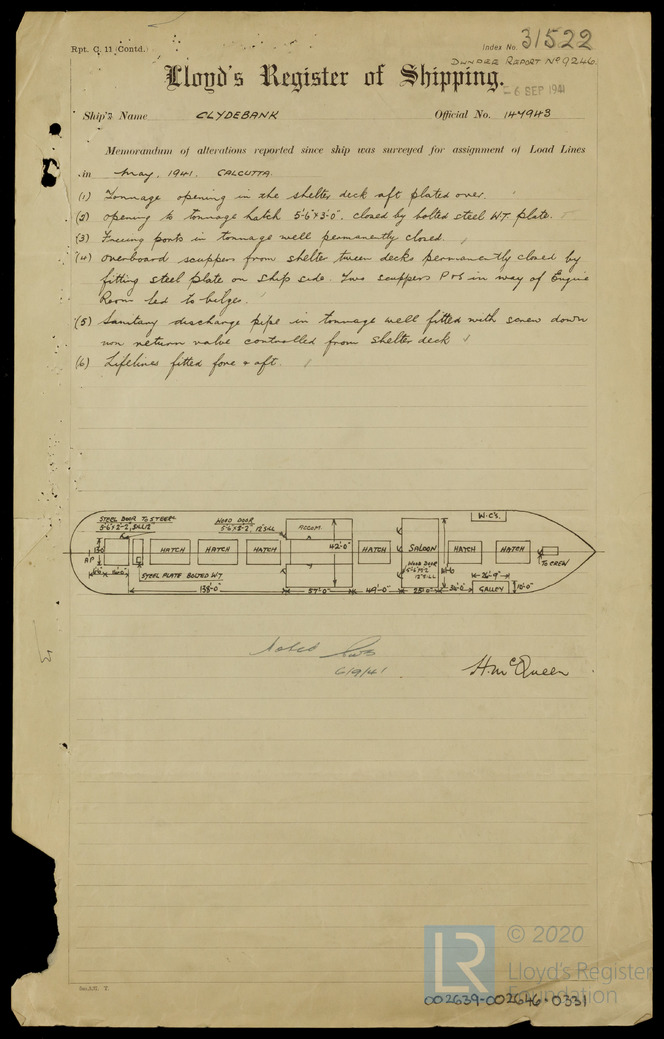 Rpt. C. 11 (Contd.)
Index No. 31522
DUNDEE REPORT No 9246
Lloyd's Register of Shipping.
6 SEP 1941
Ship's Name CLYDEBANK Official No. 147943
Memorandum of alterations reported since ship was surveyed for assignment of Load Lines
in May, 1941. CALCUTTA.
(1) Tonnage opening in the shelter deck aft plated over.
(2) Opening to tonnage hatch 5'-6"x3'-0". closed by bolted steel W.T. plate.
(3) Freeing ports in tonnage well permanently closed.
(4) Overboard scuppers from shelter tween decks permanently closed by
fitting steel plate on ship side. Two scuppers P&S in way of Engine
Room led to bilges.
(5) Sanitary discharge pipe in tonnage well fitted with screw down
non return valve controlled from shelter deck
(6) Lifelines fitted fore & aft.
STEEL DOOR TO STEER.
WOOD DOOR
5'-6"x2'-2" 12" SILL
ACCOM.
W.C's.
HATCH HATCH HATCH 42'-0" HATCH SALOON HATCH HATCH
A.P.
WOOD DOOR
12" SILL
TO CREW
STEEL PLATE BOLTED W.T.
26'-9"
138'-0" 57'-0" 49'-0" 25'-0" GALLEY 10'-0"
Noted
6/9/41
H. McQueen
© 2020
LR
Lloyd's Register
Foundation
002639-002646-0331